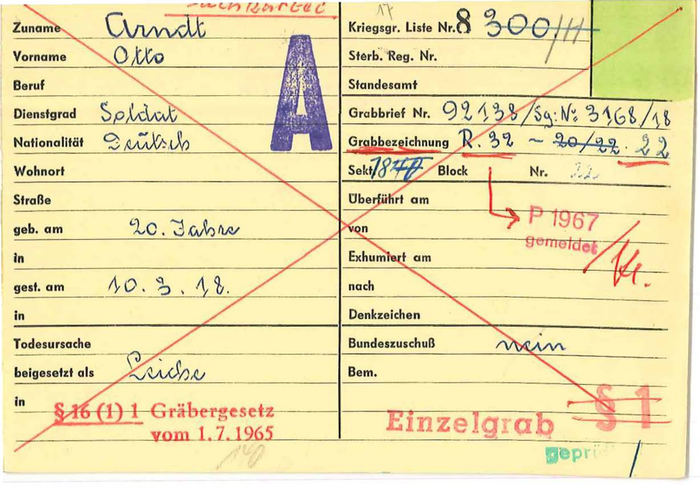 Zuname Arndt
Vorname Otto
Beruf
Dienstgrad Soldat
Nationalität Deutsch
Wohnort
Straße
geb. am 20. Jahre
in
gest. am 10. 3. 18.
in
Todesursache
beigesetzt als Leiche
in
§ 16 (1) 1 Gräbergesetz
vom 1. 7. 1965
A
17
Kriegsgr. Liste Nr. 8 300/11
Sterb. Reg. Nr.
Standesamt
Grabbrief Nr. 92138/Sg: No 3168/18
Grabbezeichnung R. 32 - 20/22. 22
Sekt. Block Nr. 22
Überführt am
P 1967
gemeldet
von
Exhumiert am
nach
Denkzeichen
Bundeszuschuß nein
Bem.
Einzelgrab § 1